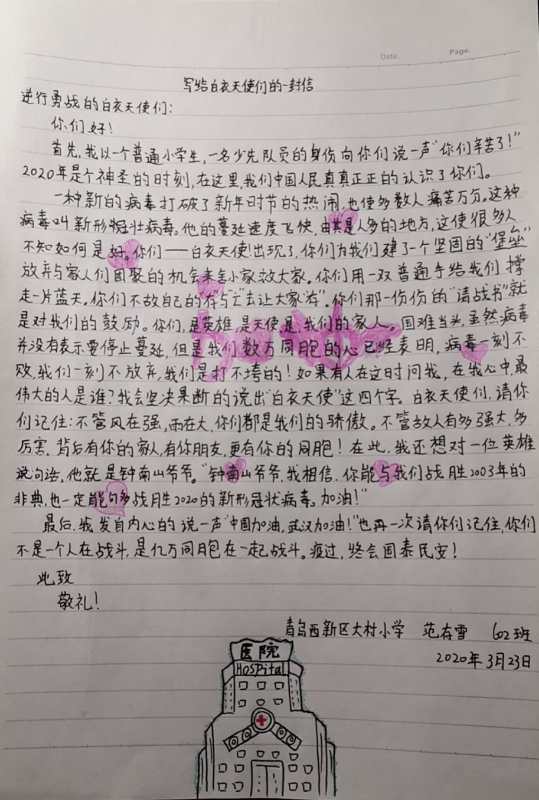 Date. Page.
写给白衣天使们的一封信
逆行勇战的白衣天使们:
你们好!
首先,我以一个普通小学生,一名少先队员的身份向你们说一声"你们辛苦了!"
2020年是个神圣的时刻,在这里,我们中国人民真真正正的认识了你们。
一种新的病毒打破了新年时节的热闹,也使多数人痛苦万分。这种
病毒叫新形冠壮病毒。他的蔓延速度飞快,由其是人多的地方,这使很多人
不知如何是好。你们——白衣天使!出现了,你们为我们建了一个坚固的"堡垒"
放弃与家人们团聚的机会来舍小家救大家。你们用一双普通手给我们撑
走一片蓝天。你们不故自己的"伤亡"去让大家"活"。你们那一份份的"请战书"就
是对我们的鼓励。你们,是英雄,是天使,是我们的家人。困难当头,虽然病毒
并没有表示要停止蔓延,但是我们数万同胞的心已经表明,病毒一刻不
败,我们一刻不放弃,我们是打不垮的!如果有人在这时问我,在我心中最
伟大的人是谁?我会坚决果断的说出"白衣天使"这四个字。白衣天使们,请你
们记住:不管风在强,雨在大,你们都是我们的骄傲。不管敌人有多强大,多
厉害,背后有你的家人,有你朋友,更有你的同胞!在此,我还想对一位英雄
说句话,他就是钟南山爷爷。"钟南山爷爷,我相信,你能与我们战胜2003年的
非典,也一定能够战胜2020的新形冠状病毒。加油!"
最后,我发自内心的说一声"中国加油,武汉加油!"也再一次请你们记住,你们
不是一个人在战斗,是亿万同胞在一起战斗。疫过,终会国泰民安!
此致
敬礼!
青岛西新区大村小学 范存雪 602班
2020年3月23日
医院
HOSPital